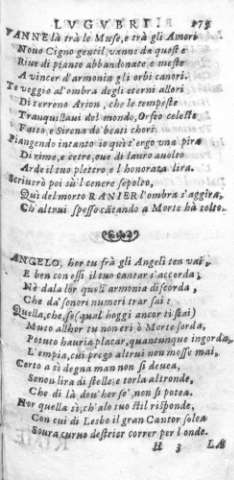 LVGVBRI 175
VANNE là trà le Muse, e trà gli Amori
Nouo Cigno gentil, vanne da queste
Riue di pianto abbandonate, e meste
A vincer d'armonia gli orbi canori.
Te veggio al'ombra degli eterni allori
Di terreno Arion, che le tempeste
Tranquillaui del mondo, Orfeo celeste
Fatto, e Sirena de' beati chori.
Piangendo intanto io qui t'ergo vna pira
Di rime, e cetre, oue di lauro auolto
Arde il tuo plettro e l'honorata lira.
Scriuerò poi sù'l cenere sepolto,
Quì del morto RANIER l'ombra s'aggira,
Ch'altrui spesso cātando a Morte hà tolto.
ANGELO, hor tu frà gli Angeli ten vai,
E ben con essi il tuo cantar s'accorda,
Nè dala lor quell'armonia discorda,
Che da' sonori numeri trar sai:
Quella, che (se qual hoggi ancor ti stai)
Muto allhor tu non eri ò Morte sorda,
Potuto hauria placar, quantunque ingorda
L'empia, cui prego altrui non mosse mai.
Certo a sì degna man non si deuea,
Se non lira di stelle; e torla altronde,
Che di là dou'her se', non si potea.
Hor quella sì, ch'al tuo stil risponde,
Con cui di Lesbo il gran Cantor solea
Soura curuo destrier correr per l'onde.
H 3 LA